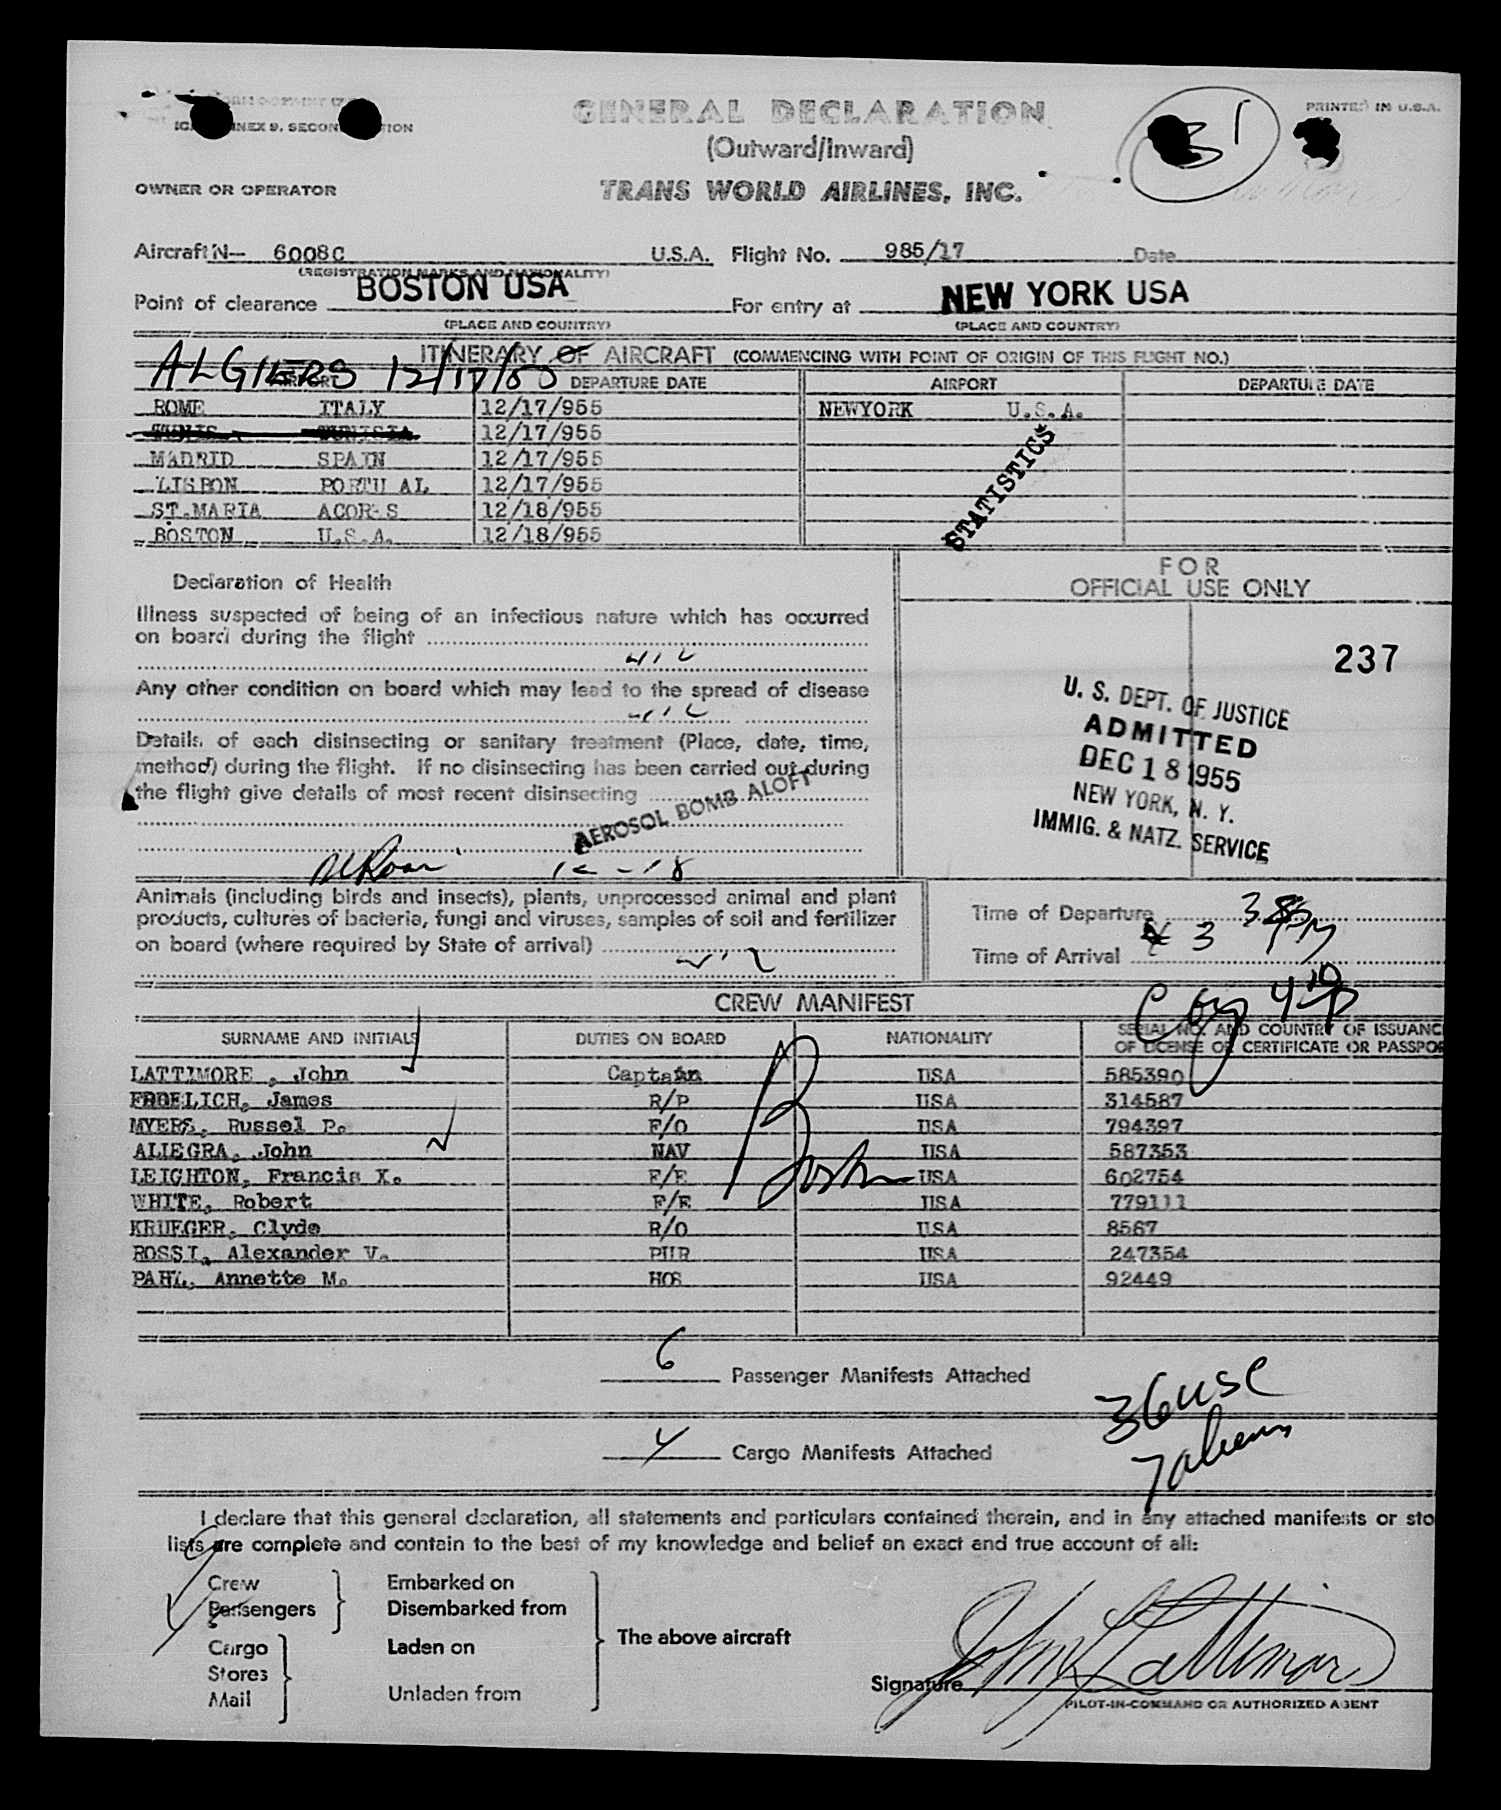 GENERAL DECLARATION
PRINTED IN U.S.A.
31
(Outward/Inward)
OWNER OR OPERATOR
TRANS WORLD AIRLINES, INC.
Aircraft N- 6008C U.S.A. Flight No. 985/17 Date
(REGISTRATION MARKS AND NATIONALITY)
Point of clearance BOSTON USA For entry at NEW YORK USA
(PLACE AND COUNTRY) (PLACE AND COUNTRY)
ITINERARY OF AIRCRAFT (COMMENCING WITH POINT OF ORIGIN OF THIS FLIGHT NO.)
ALGIERS 12/17/55
AIRPORT DEPARTURE DATE AIRPORT DEPARTURE DATE
ROME ITALY 12/17/955 NEWYORK U.S.A.
TUNIS TUNISIA 12/17/955
MADRID SPAIN 12/17/955
LISBON PORTU AL 12/17/955
ST.MARIA ACORES 12/18/955
BOSTON U.S.A. 12/18/955
STATISTICS
FOR
OFFICIAL USE ONLY
Declaration of Health
Illness suspected of being of an infectious nature which has occurred
on board during the flight
nil
Any other condition on board which may lead to the spread of disease
nil
Details of each disinsecting or sanitary treatment (Place, date, time,
method) during the flight. If no disinsecting has been carried out during
the flight give details of most recent disinsecting
AEROSOL BOMB ALOFT
12-18
237
U. S. DEPT. OF JUSTICE
ADMITTED
DEC 18 1955
NEW YORK, N. Y.
IMMIG. & NATZ. SERVICE
Animals (including birds and insects), plants, unprocessed animal and plant
products, cultures of bacteria, fungi and viruses, samples of soil and fertilizer
on board (where required by State of arrival)
nil
Time of Departure
Time of Arrival
CREW MANIFEST
SURNAME AND INITIALS DUTIES ON BOARD NATIONALITY SERIAL NO. AND COUNTRY OF ISSUANC
OF LICENSE OR CERTIFICATE OR PASSPOR
LATTIMORE , John Captain USA 585390
FROELICH, James R/P USA 314587
MYERS, Russel P. F/O USA 794397
ALIEGRA, John NAV USA 587353
LEIGHTON, Francis X. F/E USA 602754
WHITE, Robert F/E USA 779111
KRUEGER, Clyde R/O USA 8567
ROSSI, Alexander V. PUR USA 247354
PAHL, Annette M. HOS USA 92449
Boston
6 Passenger Manifests Attached
4 Cargo Manifests Attached
36 USC
7 aliens
I declare that this general declaration, all statements and particulars contained therein, and in any attached manifests or sto
lists are complete and contain to the best of my knowledge and belief an exact and true account of all:
Crew
Passengers
Cargo
Stores
Mail
Embarked on
Disembarked from
Laden on
Unladen from
The above aircraft
Signature John Lattimore
PILOT-IN-COMMAND OR AUTHORIZED AGENT